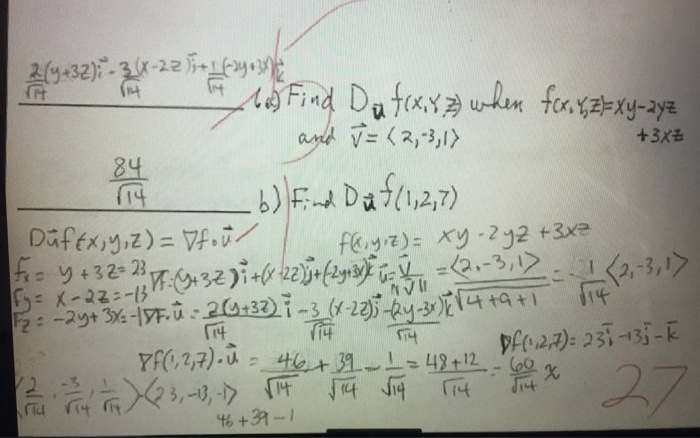 2/√14 (y+3z)i⃗ - 3/√14 (x-2z)j⃗ + 1/√14 (-2y+3x)k⃗
1a) Find D_u f(x,y,z) when f(x,y,z)=xy-2yz
and v⃗ = <2,-3,1> +3xz
84/√14
b) Find D_u⃗ f(1,2,7)
Du⃗f(x,y,z) = ∇f·u⃗ f(x,y,z) = xy - 2yz + 3xz
fx = y + 3z = 23 ∇f=(y+3z)i⃗+(x-2z)j⃗+(-2y+3x)k⃗ u⃗ = v⃗/||v⃗|| = <2,-3,1>/√4+9+1 = 1/√14 <2,-3,1>
Fy = x - 2z = -13
Fz = -2y + 3x = -1 ∇F·u⃗ = 2(y+3z)/√14 i⃗ - 3/√14 (x-2z)j⃗ - (2y-3x)/√14 k⃗
∇f(1,2,7) = 23i⃗ - 13j⃗ - k⃗
∇f(1,2,7)·u⃗ = 46/√14 + 39/√14 - 1/√14 = 48+12/√14 = 60/√14 x
(2/√14, -3/√14, 1/√14)·(23, -13, -1)
46 + 39 - 1
27